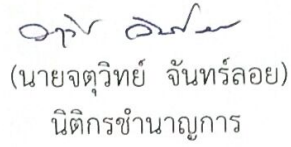 (นายจตุวิทย์ จันทร์ลอย)
นิติกรชำนาญการ